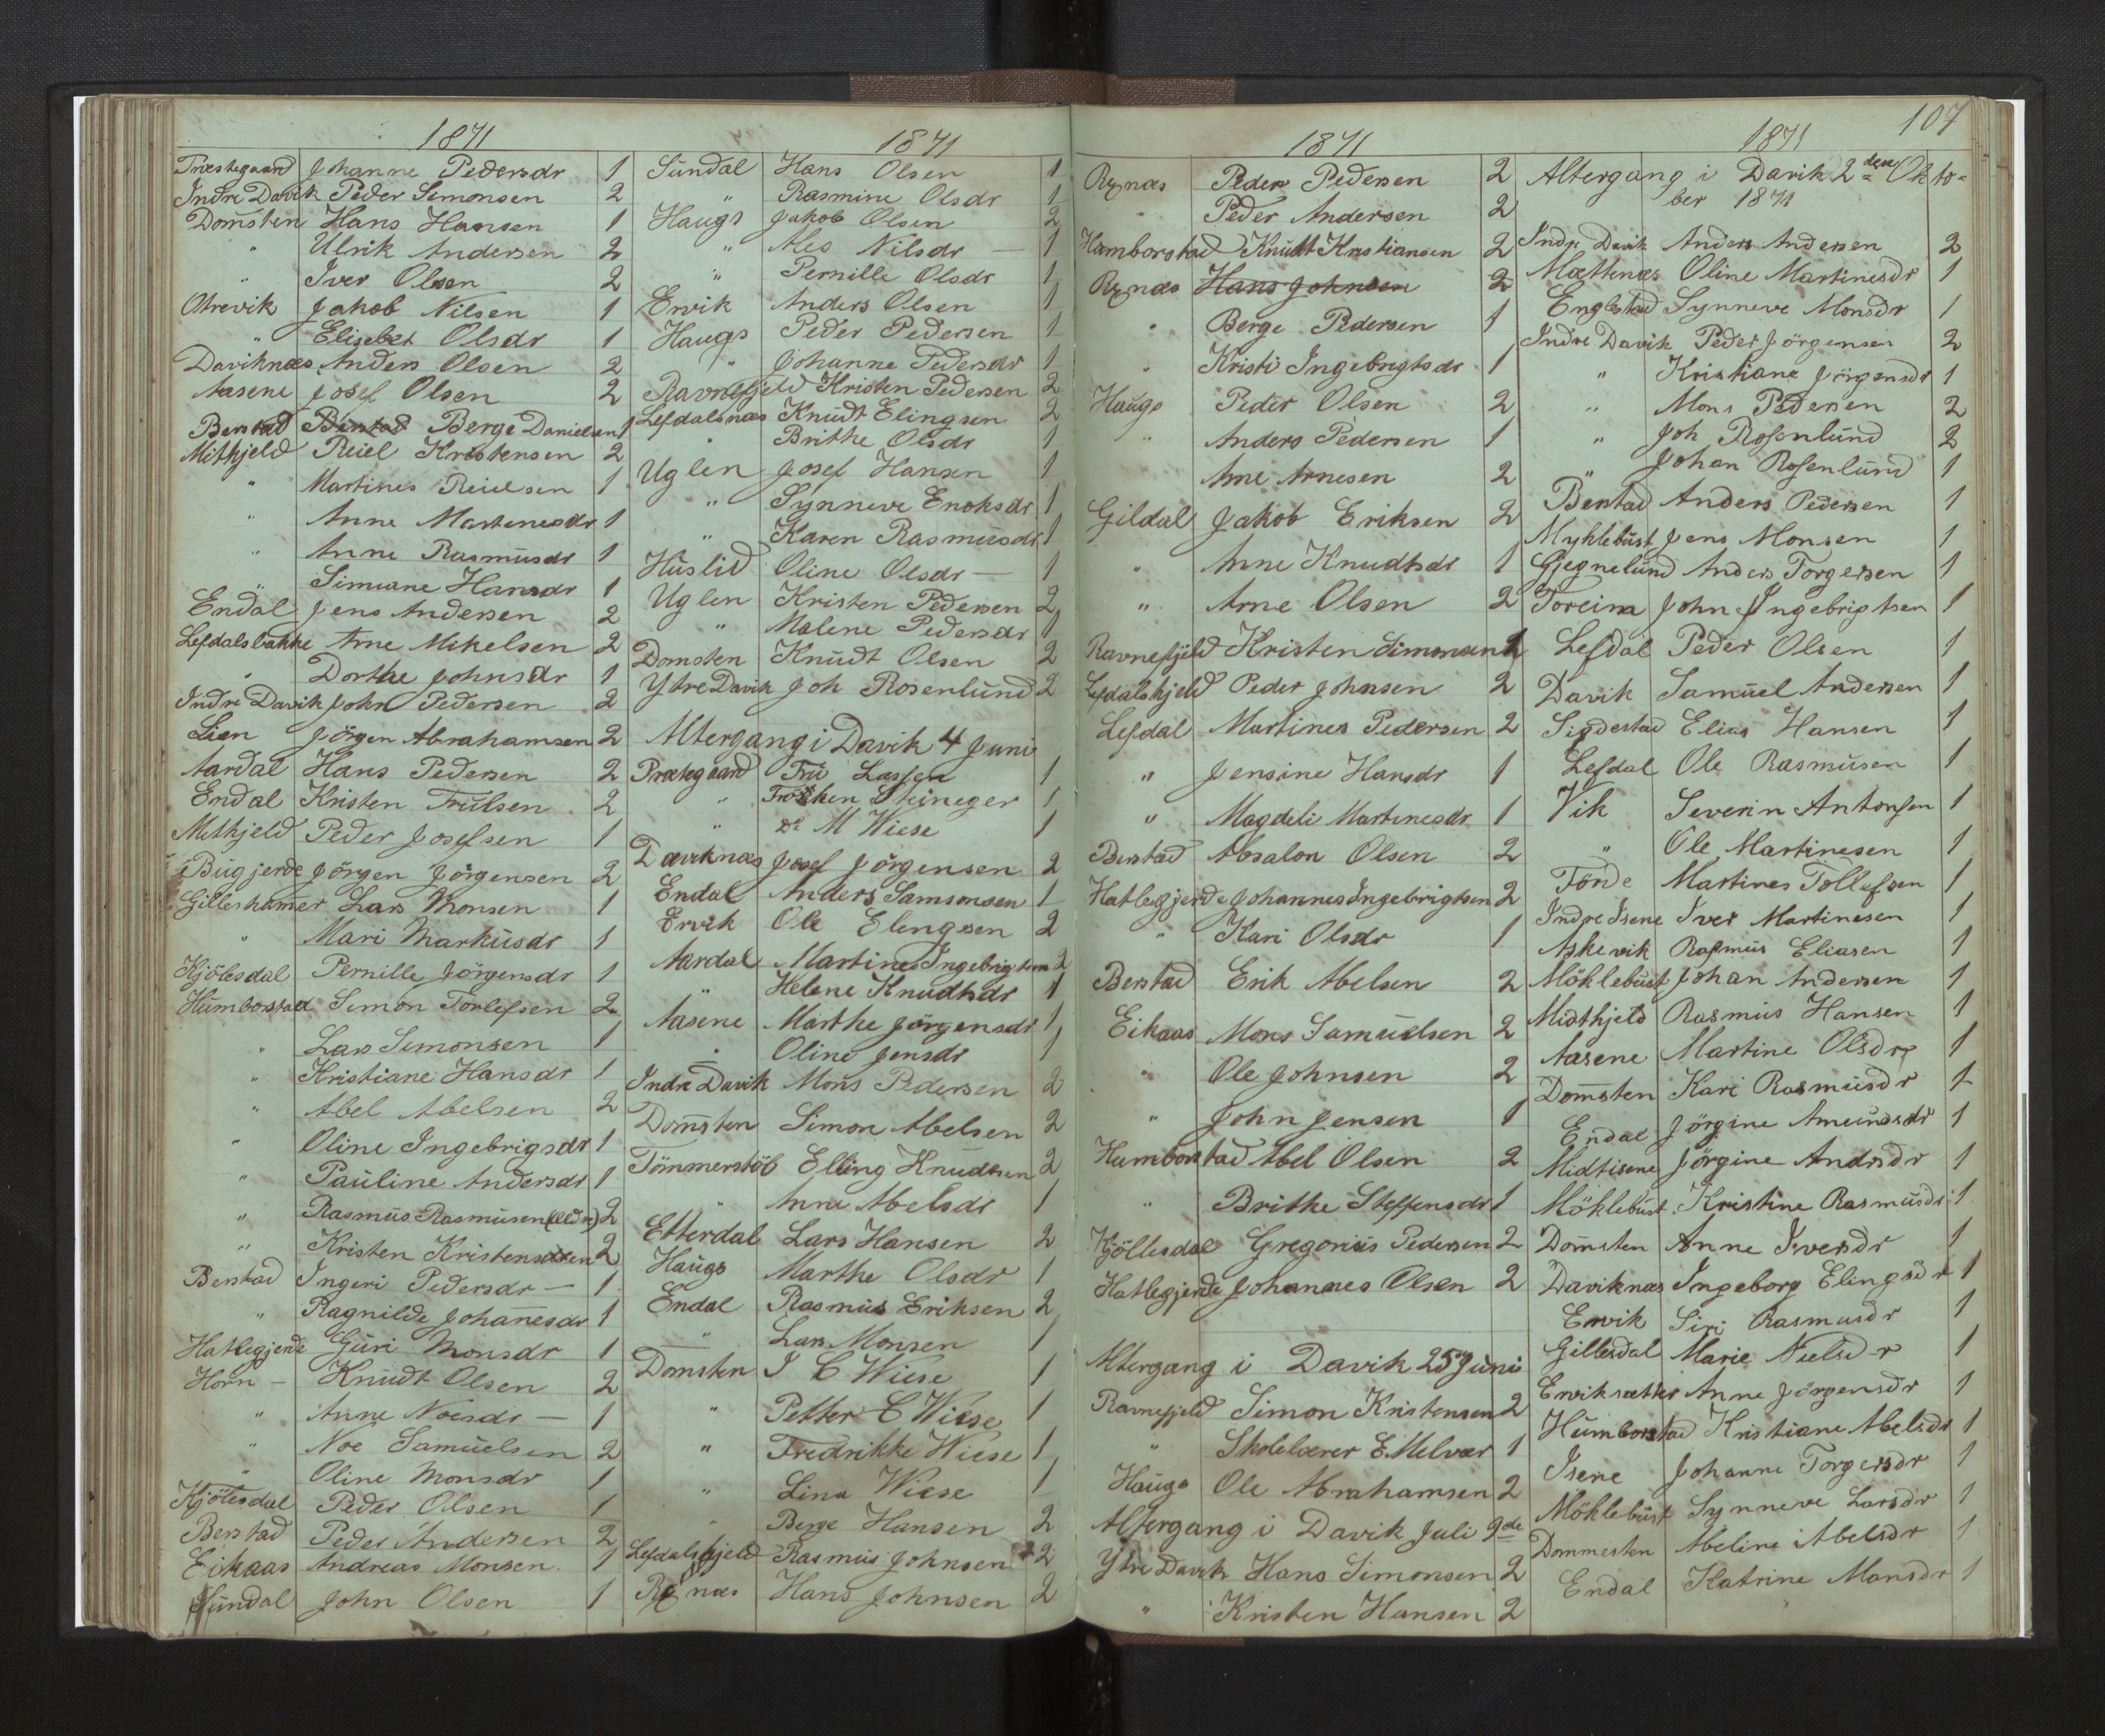 1871
Præstegaard Johanne Pedersdr 1
Indre Davik Peder Simonsen 2
Domsten Hans Hansen 1
" Ulrik Andersen 2
" Iver Olsen 2
Otrevik Jakob Nilsen 1
" Elisebet Olsdr 1
Daviknæs Anders Olsen 2
Aasene Josef Olsen 2
Berstad Berstad Berge Danielsen 1
Mithjeld Reiel Kristensen 2
" Martines Reielsen 1
" Anne Martinesdr 1
" Anne Rasmusdr 1
" Simiane Hansdr 1
Endal Jens Andersen 2
Lefdalsbakke Arne Mikelsen 2
" Dorthe Johnsdr 1
Indre Davik John Pedersen 2
Lien Jörgen Abrahamsen 2
Aardal Hans Pedersen 2
Endal Kristen Trulsen 2
Mithjeld Peder Josefsen 1
Bugjerde Jörgen Jörgensen 2
Gilleshamer Lars Monsen 1
" Mari Markusdr 1
Kjölesdal Pernille Jörgensdr 1
Humborstad Simon Torlefsen 2
" Lars Simonsen 1
" Kristiane Hansdr 1
" Abel Abelsen 2
" Oline Ingebrigsdr 1
" Pauline Andersdr 1
" Rasmus Rasmusen (Oldr) 2
" Kristen Kristensen 2
Berstad Ingeri Pedersdr — 1
" Ragnilde Johanesdr 1
Hatlegjerde Guri Monsdr 1
Horn — Knudt Olsen 2
" Anne Noesdr — 1
" Noe Samuelsen 2
" Oline Monsdr 1
Kjölesdal Peder Olsen 1
Berstad Peder Andersen 2
Eikaas Andreas Monsen. 1
Sundal John Olsen 1
1871
Sundal Hans Olsen 1
" Rasmine Olsdr 1
Haugs Jakob Olsen 2
" Ales Nilsdr — 1
" Pernille Olsdr 1
Ervik Anders Olsen 1
Haugs Peder Pedersen 1
" Johanne Pedersdr 1
Ravnefjeld Kristen Pedersen 2
Lefdalsnæs Knudt Elingsen 2
" Brithe Olsdr 1
Uglen Josef Hansen 1
" Synneve Enoksdr 1
" Karen Rasmusdr 1
Huslid Oline Olsdr — 1
Uglen Kristen Pedersen 2
" Malene Pedersdr 1
Domsten Knudt Olsen 2
Ytre Davik Joh Rosenlund 2
Altergang i Davik 4 Juni
Præstegaard Fru Lassen 1
" Fröken Steineger 1
" Do M Wiese 1
Daviknæs Josef Jörgensen 2
Endal Anders Samsonsen 1
Ervik Ole Elingsen 2
Aardal Martines Ingebrigtsen 2
" Helene Knudtsdr 1
Aasene Marthe Jörgensdr 1
" Oline Jensdr 1
Indre Davik Mons Pedersen 2
Domsten Simon Abelsen 2
Tömmerstöb Elling Knudtsen 2
" Anne Abelsdr 1
Etterdal Lars Hansen 2
Haugs Marthe Olsdr 1
Endal Rasmus Eriksen 2
" Lars Monsen 1
Domsten I C Wiese 1
" Petter C Wiese 1
" Fredrikke Wiese 1
" Lina Wiese 1
" Berge Hansen 2
Lefdalshjeld Rasmus Johnsen 2
Rynæs Hans Johnsen 2
107
1871
Rynæs Peder Pedersen 2
" Peder Andersen 2
Humborstad Knudt Kristiansen 2
Rynæs Hans Johnsen 2
" Berge Pedersen 1
" Kristi Ingebrigtsdr 1
Haugs Peder Olsen 2
" Anders Pedersen 1
Arne Arnesen 2
Gildal Jakob Eriksen 2
" Anne Knudtsdr 1
" Arne Olsen 2
Ravnefjeld Kristen Simonsen 1
Lefdalshjeld Peder Johnsen 2
Lefdal Martines Pedersen 2
" Jensine Hansdr 1
" Magdeli Martinesdr 1
Berstad Absalon Olsen 2
Hatlegjerde Johannes Ingebrigtsen 2
" Kari Olsdr 1
Berstad Erik Abelsen 2
Eikaas Mons Samuelsen 2
" Ole Johnsen 2
" John Jensen 1
Humborstad Abel Olsen 2
" Brithe Steffensdr 1
Kjöllesdal Gregorius Pedersen 2
Hatlegjerde Johannes Olsen 2
Altergang i Davik 25 Juni
Ravnefjeld Simon Kristensen 2
" Skolelærer E Melvær 1
Haugs Ole Abrahamsen 2
Altergang i Davik Juli 9de
Ytre Davik Hans Simonsen 2
" Kristen Hansen 2
1871
Altergang i Davik 2den Okto-
ber 1871
Indre Davik Anders Andersen 2
Mættenæs Oline Martinesdr 1
Englestad Synneve Monsdr 1
Indre Davik Peder Jörgensen 2
" Kristiane Jörgensdr 1
" Mons Pedersen 2
" Joh Rosenlund 2
" Johan Rosenlund 1
Berstad Anders Pedersen 1
Myhlebust Jens Monsen 1
Gjegnelund Anders Torgersen 1
Toreim John Ingebrigtsen 1
Lefdal Peder Olsen 1
Davik Samuel Andersen 1
Sigdestad Elias Hansen 1
Lefdal Ole Rasmusen 1
Vik Severin Antonsen 1
" Ole Martinesen 1
Förde Martines Tollefsen 1
Indre Isene Iver Martinesen 1
Askevik Rasmus Eliasen 1
Möklebust Johan Andersen 1
Midthjeld Rasmus Hansen 1
Aasene Martine Olsdr 1
Domsten Kari Rasmusdr 1
Endal Jörgine Amundsdr 1
Midtisene Jörgine Andrsdr 1
Möklebust Kristine Rasmusdr 1
Domsten Anne Iversdr 1
Daviknæs Ingeborg Elingsdr 1
Ervik Siri Rasmusdr 1
Gillesdal Marie Nielsdr 1
Erviksætter Anne Jörgensdr 1
Humborstad Kristiane Abelsdr 1
Isene Johanne Torgersdr 1
Möklebust Synneve Larsdr 1
Dommesten Abeline Abelsdr 1
Endal Katrine Monsdr 1